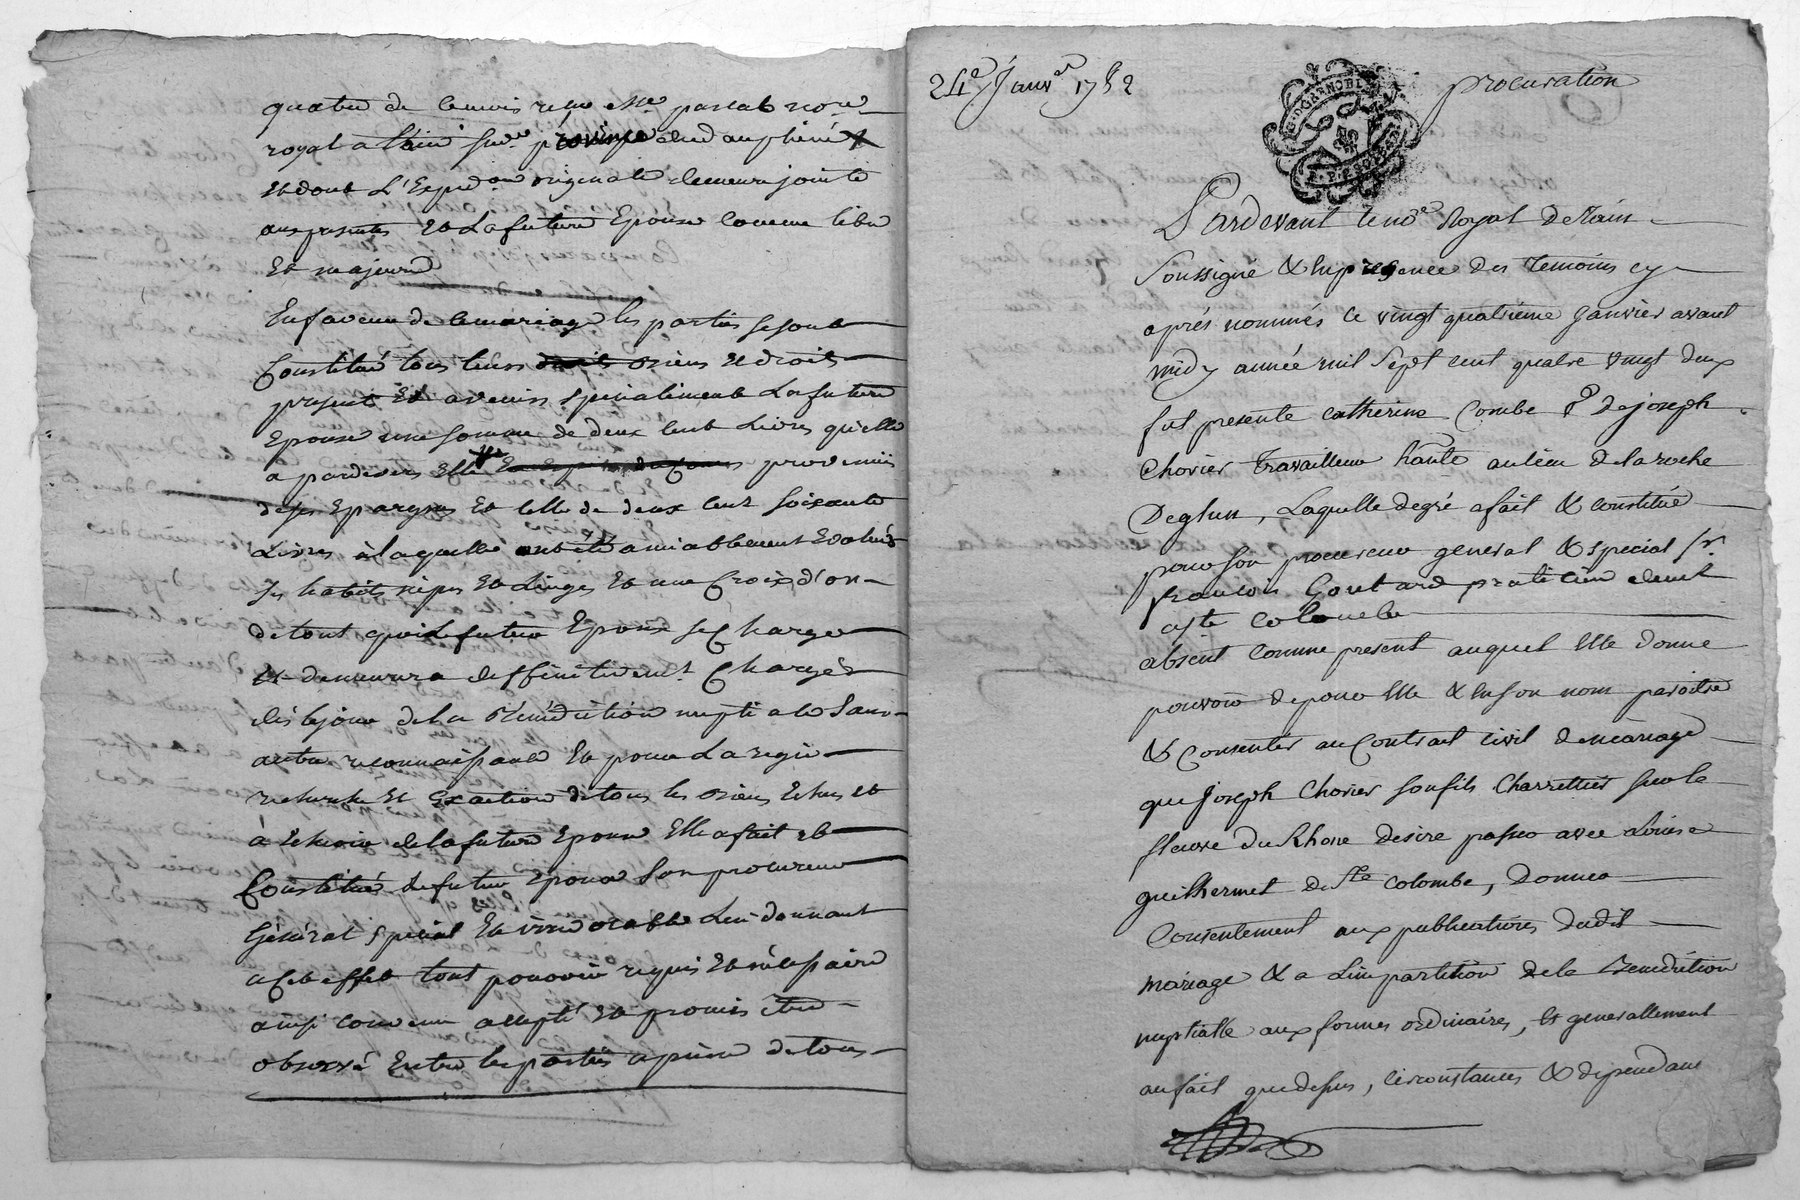 quatre de ce mois reçu me pascal no.re
royal a Tain sus.te province du dauphiné
et dont L'Exped.on originale demeure jointe
aux presentes et La future Epouse comme libre
Et majeure
En faveur de ce mariage les parties se sont
Constitué tous leurs droits biens et droits
present et avenirs specialement La future
Epouse une somme de deux cent Livres qu'elle
a pardevers Elle provenüe
de ses Epargnes et celle de deux cent soixante
Livres à laquelle ont été amiablement Evalués
ses habits nipes et Linges et une Croix d'or
de tout quoi Le futur Epoux se Charge
et demeurera deffinitivem.t Chargé
dès le jour de la Bénédiction nuptiale sans
autre reconnaissance et pour La regie
recherche et Exaction de tous les biens Echus et
à Echeoir de la future Epouse Elle a fait et
Constitué le futur Epoux son procureur
Général special et irrévocable Lui donnant
a cet effet tout pouvoir requis et nécessaire
ainsi convenu accepté et promis être
observé Entre les parties a peine de tous
24e Janv.er 1782
procuration
G. D GRENOBLE
Pardevant le no.re Royal de Tain
soussigné & en presence des temoins cy
après nommés ce vingt quatrieme janvier avant
midy année mil sept cent quatre vingt deux
fut presente catherine Combe v.e de joseph
Chovier travailleur hante au lieu de la roche
Deglun, Laquelle de gré a fait & constitué
pour son procureur general & special s.r
francois Goutard praticien dud.t
ste colombe
absent comme present auquel Elle donne
pouvoir de pour Elle & en son nom paroitre
& Consenter au Contrat civil de mariage
que Joseph Chovier son fils Charrettier sur le
fleuve du Rhone desire passer avec Louise
guilhermet de Ste colombe, Donner
Consentement aux publications dudit
mariage & a Limpartition de la Benediction
nuptialle aux formes ordinaires, et generallement
au fait que dessus, circonstances & dependans